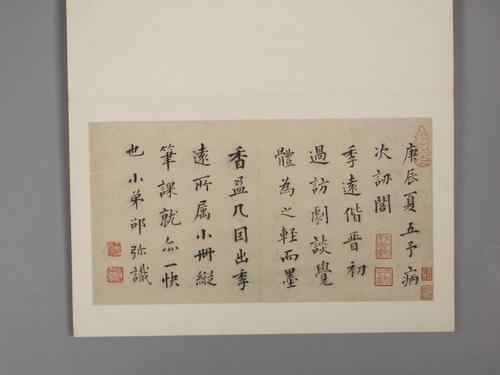 庚辰夏五予病
次訒閣
季遠偕晋初
過訪劇談覺
體為之輕而墨
香盈几因出季
遠所属小冊縱
筆課就亦一快
也小弟邵弥識